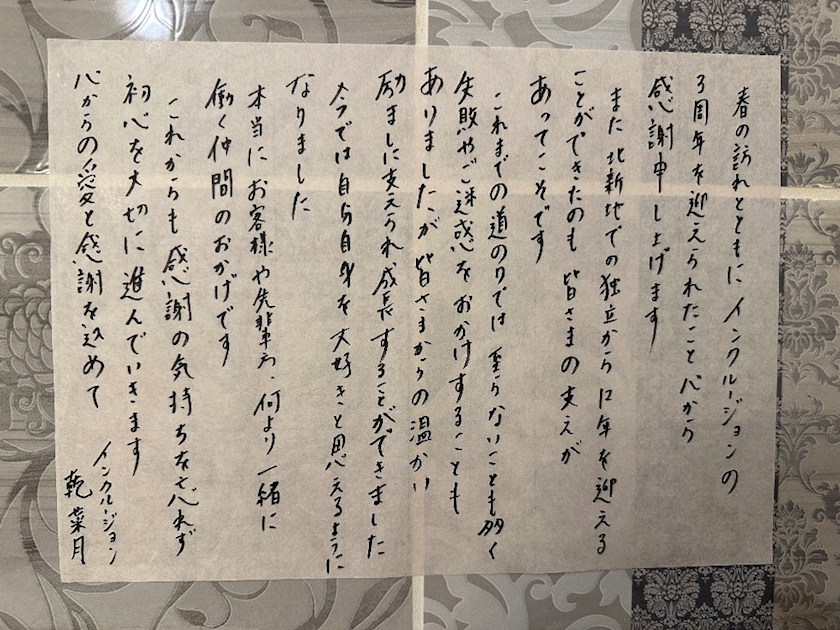 春の訪れとともに インクルージョンの
3周年を迎えられたこと 心から
感謝申し上げます
また 北新地での独立から 12年を迎える
ことができたのも 皆さまの支えが
あってこそです
これまでの道のりでは 至らないことも多く
失敗やご迷惑をおかけすることも
ありましたが 皆さまからの温かい
励ましに支えられ 成長することができました
今では自分自身を 大好きと思えるように
なりました
本当に お客様や先輩方、何より一緒に
働く仲間のおかげです
これからも 感謝の気持ちを忘れず
初心を大切に 進んでいきます
心からの愛と感謝を込めて
インクルージョン
乾 葉月